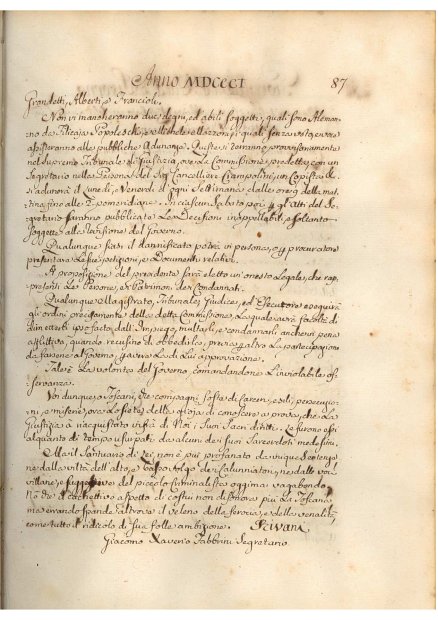 Anno MDCCCI 87
Grondetti, Alberti, e Francioli.
Non vi mancheranno due degni, ed abili Soggetti, quali sono Aleman-
no da Filicaja Popoleschi, e Michele Mazzoni, i quali senza voto, e vece
assisteranno alle pubbliche Adunanze. Questa si terranno provvisoriamente
nel supremo Tribunale di Giustizia, ove La Commissione predetta, con un
Segretario nella Persona del Cancelliere Ciampolini, con Copista
si adunerà il Lunedì, e Venerdì d'ogni Settimana, dalle ore 9 della mat-
tina fino alle 2 pomeridiane. In ciascun Sabato poi gli atti del Se-
gretario saranno pubblicate Le Decisioni inappellabili, e soltanto
soggette alla Revisione del Governo.
Qualunque siasi il dannificato potrà in persona, o procuratore
presentare Le sue petizioni, e Documenti relativi.
A proposizione del presidente sarà eletto un onesto Legale, che rap-
presenti Le Persone, e Patrimoni dei Condannati.
Qualunque Magistrato, Tribunale, Giudice, ed Esecutore eseguirà
gli ordini precisamente della detta Commissione, La quale avrà facoltà di
dimetterli ipso facto dall' Impiego, multarli, e condannarli anche in pena
afflittiva, quando recusino di obbedirle, previa però La partecipazione
da farsene al Governo, per La di Lui approvazione.
Tale è La volontà del Governo, comandandone L'inviolabile os-
servanza.
Voi dunque, o Toscani, tre compagni sofferte di Carceri, esilj, persecuzio-
ni, e miserie, ora lasciate della gioja di conoscere a prova, che La
Giustizia à riacquistato in fra di Noi i Suoi Sacri diritti. Le furono essi
alquanto di tempo usurpati da alcuni dei suoi Sacerdoti medesimi.
Ma il Santuario di Lei, non è più profanato da inique Sentenze,
ne dalla viltà dell'alto, e basso volgo dei Calunniatori, ne dalle voci
villane, e suggestive del piccolo criminalista oggimai vagabondo.
Nò tre il cachettico aspetto di costui non disonora più La Toscana,
ma errando spande altrove il veleno della ferocia, e della venalità,
come tutto il ridicolo di sua folle ambizione. Pervani
Giacomo Xaverio Fabbrini Segretario